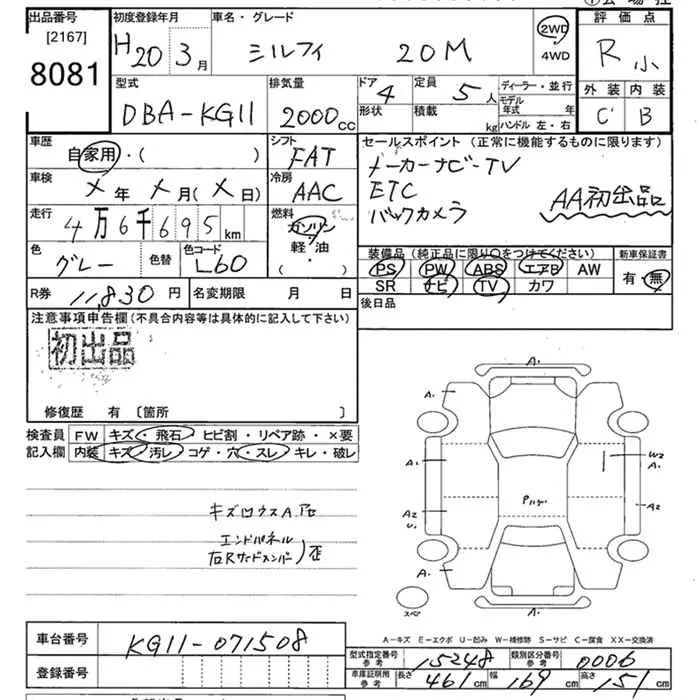 出品番号 [2167] 8081
初度登録年月 H20 3月
車名・グレード シルフィ 20M
2WD
4WD
評価点 R 小
外装 C' 内装 B
型式 DBA-KG11
排気量 2000cc
ドア 4 形状
定員 5人 積載 kg
ディーラー・並行
モデル年式 年
ハンドル 左・右
車歴 自家用・( )
シフト FAT
車検 ×年 ×月(×日)
冷房 AAC
走行 4万6千695km
燃料 ガソリン 軽・油 ・( )
色 グレー 色替
色コード L60
R券 11,830円 名変期限 月 日
セールスポイント(正常に機能するものに限ります)
メーカーナビ-TV
ETC
バックカメラ
AA初出品
装備品(純正品に限り○をつけてください)
PS PW ABS エアB AW
SR ナビ TV カワ
新車保証書
有・無
後日品
注意事項申告欄(不具合内容等は具体的に記入して下さい)
初出品
修復歴 有 〔箇所 〕
検査員記入欄
FW キズ・飛石・ヒビ割・リペア跡・×要
内装 キズ・汚レ・コゲ・穴・スレ・キレ・破レ
エンドパネル
A.
A. A.
A. W2
A.
A2 A2
U.
A. A.
スペア
A-キズ E-エクボ U-凹み W-補修跡 S-サビ C-腐食 XX-交換済
車台番号 KG11-071508
登録番号
型式指定番号 参考 15248
類別区分番号 参考 0006
車庫証明用 参考 長さ 461cm 幅 169cm 高さ 151cm